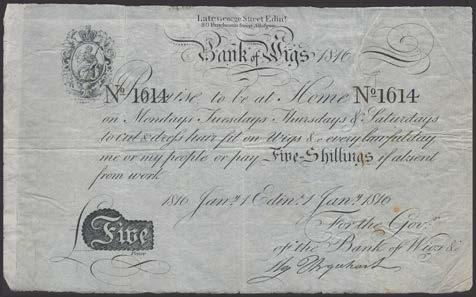 Late George Street Edinr
80 Hutcheson Street, Glasgow
Bank of Wigs 1816
No 1614 Promise to be at Home No 1614
on Mondays Tuesdays Thursdays & Saturdays
to cut & dress hair fit on Wigs &c every lawful day
me or my people or pay Five-Shillings if absent
from work
1816 Jany 1 Edinr 1 Jany 1816
For the Govr
of the Bank of Wigs &c
£ Five
Hy Urquhart